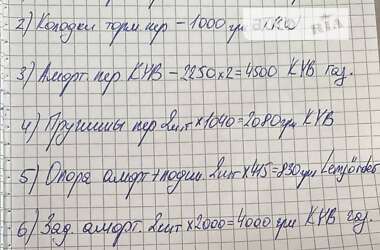 2) Колодки торм. пер – 1000 грн
3) Аморт. пер КУВ – 2250 х 2 = 4500 КУВ газ.
4) Пружины пер 2шт х 1040 = 2080грн КУВ
5) Опора аморт + подш. 2шт х 415 = 830 грн Lemförder
6) Зад. аморт. 2шт х 2000 = 4000 грн КУВ газ.